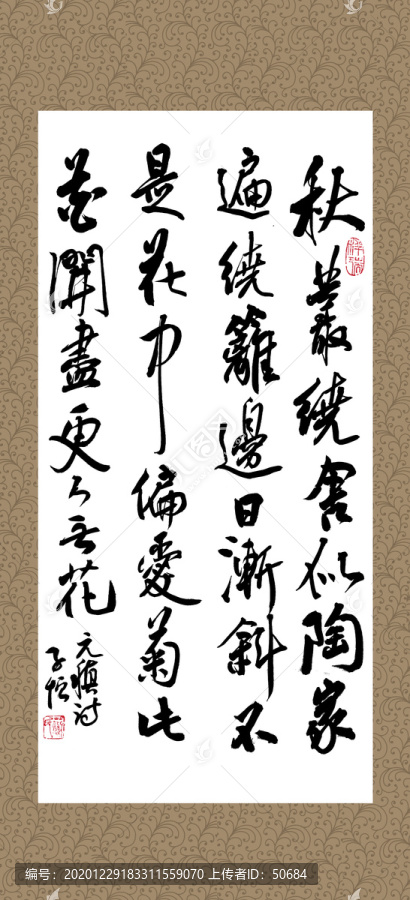 秋叢繞舍似陶家
遍繞籬邊日漸斜不
是花中偏愛菊此
花開盡更無花
元稹詩
编号：20201229183311559070 上传者ID：50684